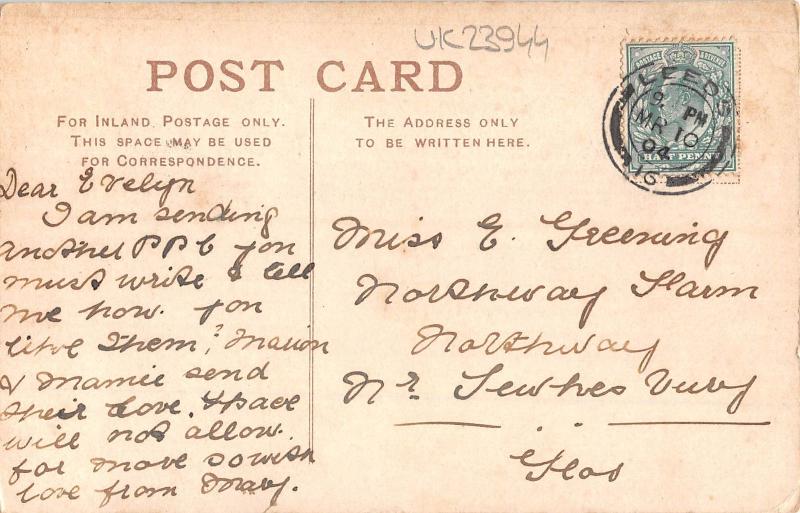 UK23944
POST CARD
FOR INLAND POSTAGE ONLY.
THIS SPACE MAY BE USED
FOR CORRESPONDENCE.
THE ADDRESS ONLY
TO BE WRITTEN HERE.
POSTAGE REVENUE
HALF PENNY
LEEDS
9 PM
MR 10
04
16
Dear Evelyn
I am sending
another PPC you
must write & tell
me how you
like them? Marion
& Mamie send
their love. Space
will not allow
for more so with
love from Mary.
Miss E. Greening
Northway Farm
Northway
Nr. Tewkesbury
Glos